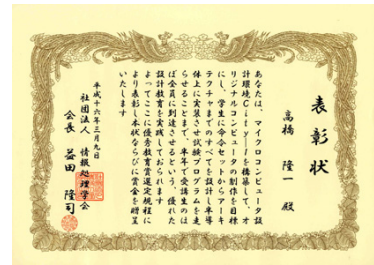 表彰状
高橋 隆一 殿
あなたは、マイクロコンピュータ設
計環境City-1を構築して、オ
リジナルコンピュータの制作を目標
にし、学生に命令セットからアーキ
テクチャまでのすべてを設計し半導
体上に実装させ試験プログラムを走
らせることまで、半年で受講生のほ
ぼ全員に到達させるという、優れた
設計教育を実践しておられます
よってここに優秀教育賞選定規程に
より表彰し本状ならびに賞金を贈呈
いたします
平成十六年三月九日
社団法人 情報処理学会
会長 益田 隆司